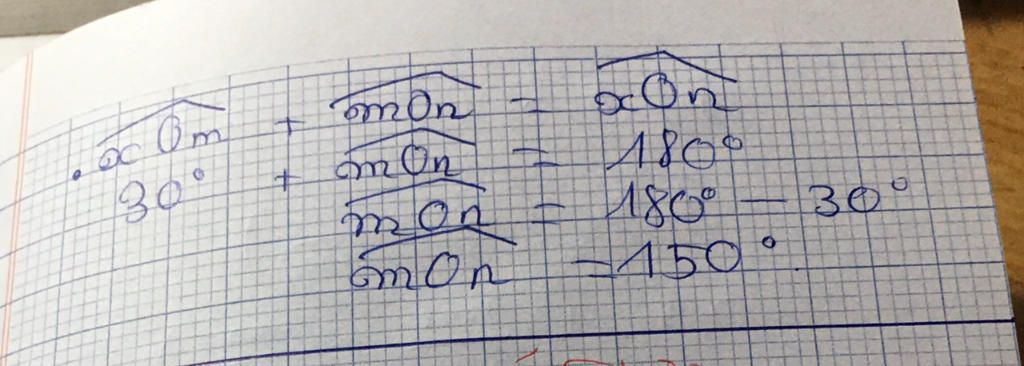 . xOm + mOn = xOn
30° + mOn = 180°
mOn = 180° - 30°
mOn = 150°.